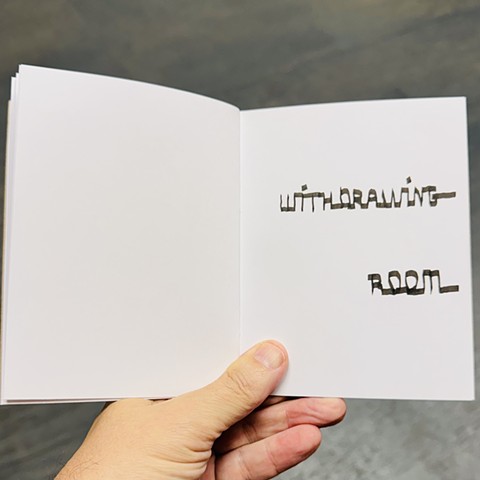 WITHDRAWING
ROOM